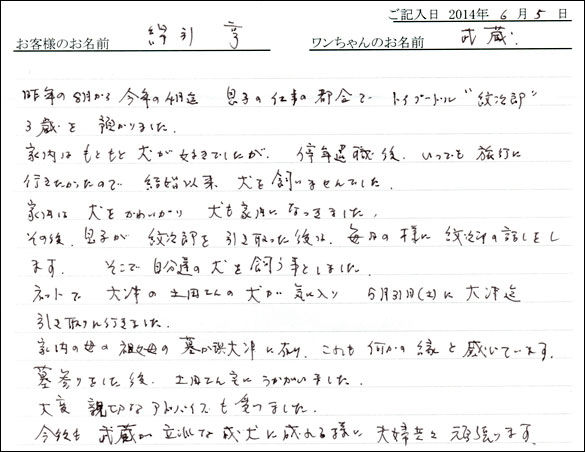 ご記入日 2014年 6月 5日
お客様のお名前 綿引 亨 ワンちゃんのお名前 武蔵.
昨年の8月から今年の4月迄 息子の仕事の都合で トイプードル "紋次郎"
3歳を 預かりました.
家内はもともと 犬が好きでしたが, 停年退職後, いつでも旅行に
行きたかったので 結婚以来 犬を飼いませんでした.
家内は 犬をかわいがり 犬も家内になつきました.
その後, 息子が 紋次郎を 引き取った後は, 毎日の様に 紋次郎の話しをし
ます. そこで 自分達の犬を飼う事としました.
ネットで 大津の土田さんの犬が気に入り 5月31日(土)に大津迄
引き取りに行きました.
家内の母の祖父母の墓が 大津に在り, これも何かの縁と感じています.
墓参りをした後, 土田さん宅にうかがいました.
大変 親切なアドバイスも受けました.
今後も 武蔵が立派な成犬に成れる様に 夫婦共々 頑張ります.